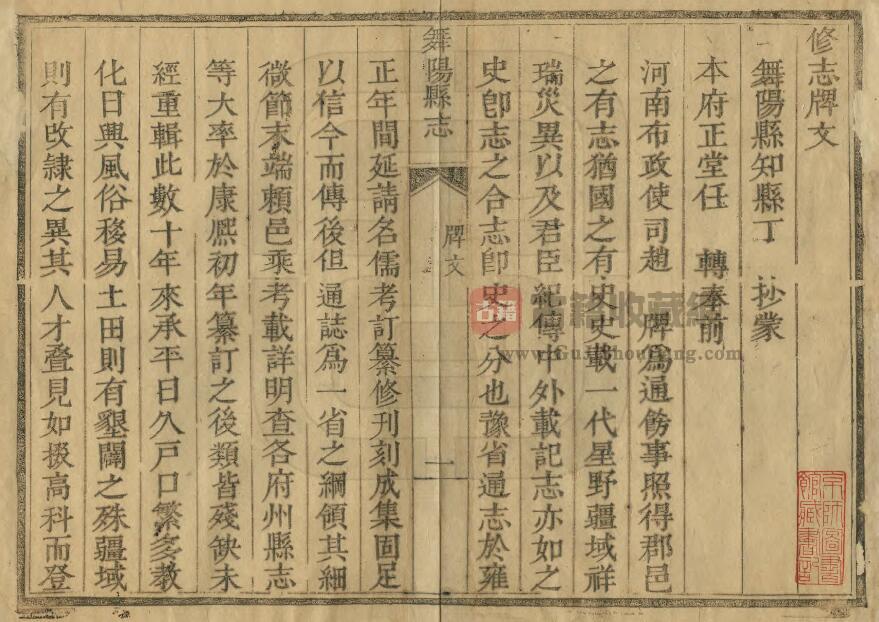 修志牌文
舞陽縣知縣丁 抄蒙
本府正堂任 轉奉前
河南布政使司趙 牌爲通飭事照得郡邑
之有志猶國之有史史載一代星野疆域祥
瑞災異以及君臣紀傳中外載記志亦如之
史卽志之合志卽史之分也豫省通志於雍
舞陽縣志
牌文
一
正年間延請名儒考訂纂修刊刻成集固足
以信今而傳後但通誌爲一省之綱領其細
微節末端賴邑乘考載詳明查各府州縣志
等大率於康熈初年纂訂之後類皆殘缺未
經重輯此數十年來承平日久戶口繁多教
化日興風俗移易土田則有墾闢之殊疆域
則有改隷之異其人才疊見如掇高科而登
京師圖書
館藏書記
古籍
古籍收藏網